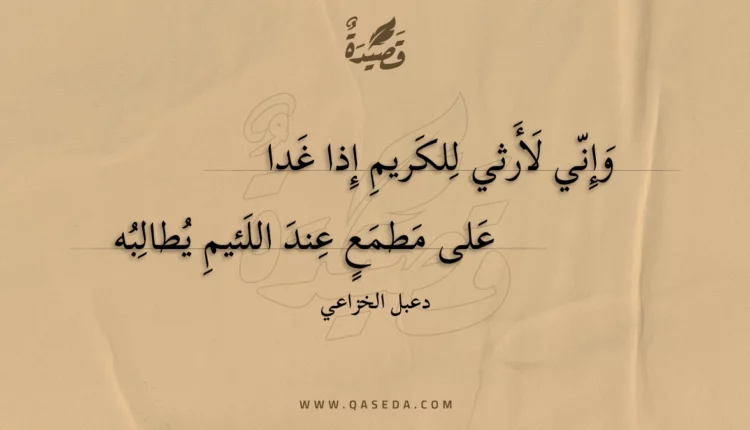 قَصِيدَةٌ
وَإِنّي لَأَرثي لِلكَريمِ إِذا غَدا
عَلى مَطمَعٍ عِندَ اللَئيمِ يُطالِبُه
دعبل الخزاعي
WWW.QASEDA.COM